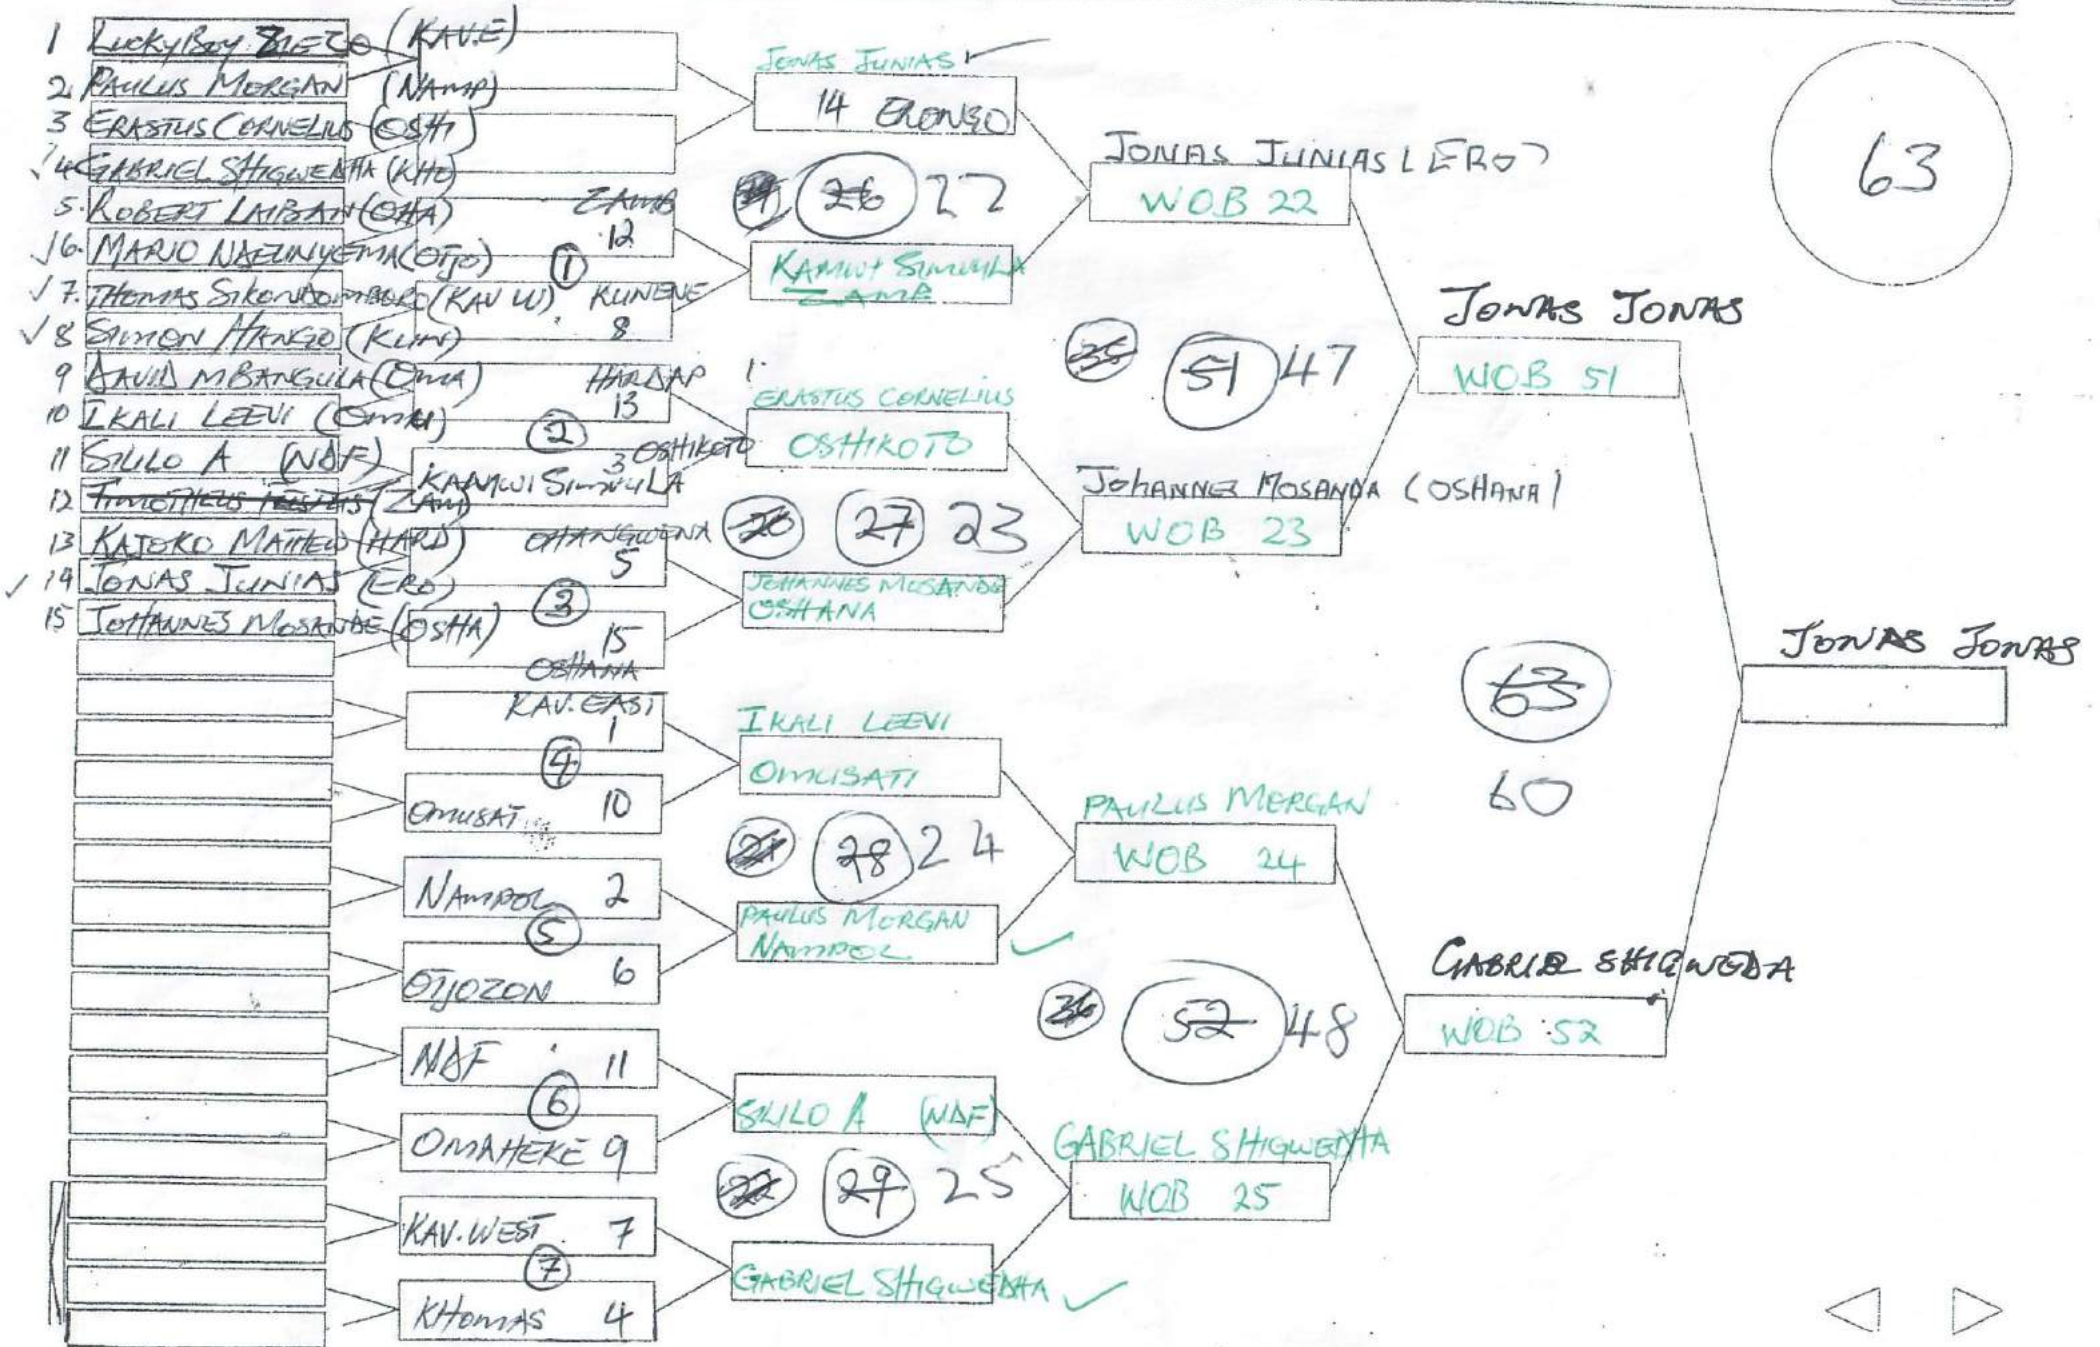 1 LUCKYBOY (KAV.E)
2. PAULUS MORGAN (NAMP)
3 ERASTUS CORNELIUS (OSHI)
√4 GABRIEL SHIGWEDHA (KHO)
5. ROBERT LAIBAN (OHA)
√6. MARIO NAEUNYEMA (OTJO)
√7. THOMAS (KAV W)
√8 SIMON HANGO (KUN)
9 DAVID MBANGULA (OMA)
10 IKALI LEEVI
11 SILILO A (NDF)
12 (ZAM)
KAMWI SIMVULA
13 KAJOKO MATHEW (HARD)
√ 14 JONAS JUNIAS (ERO)
15 JOHANNES MOSANDE (OSHA)
ZAMB
12
1
KUNENE
8
HARDAP
13
2
3 OSHIKOTO
OHANGWENA
5
3
15
OSHANA
KAV. EAST
1
4
OMUSAT 10
NAMPOL 2
5
OTJOZON 6
NDF 11
6
OMAHEKE 9
KAV. WEST 7
7
KHOMAS 4
JONAS JUNIAS √
14 ERONGO
26 22
KAMWI SIMVULA
ZAMB
ERASTUS CORNELIUS
OSHIKOTO
20 27 23
JOHANNES MOSANDE
OSHANA
IKALI LEEVI
OMUSATI
21 28 24
PAULUS MORGAN
NAMPOL √
SILILO A (NDF)
22 29 25
GABRIEL SHIGWEDHA √
JONAS JUNIAS (ERO)
WOB 22
35 51 47
JOHANNES MOSANDA (OSHANA)
WOB 23
PAULUS MORGAN
WOB 24
52 48
GABRIEL SHIGWEDHA
WOB 25
JONAS JONAS
WOB 51
63
60
GABRIEL SHIGWEDA
WOB 52
63
JONAS JONAS